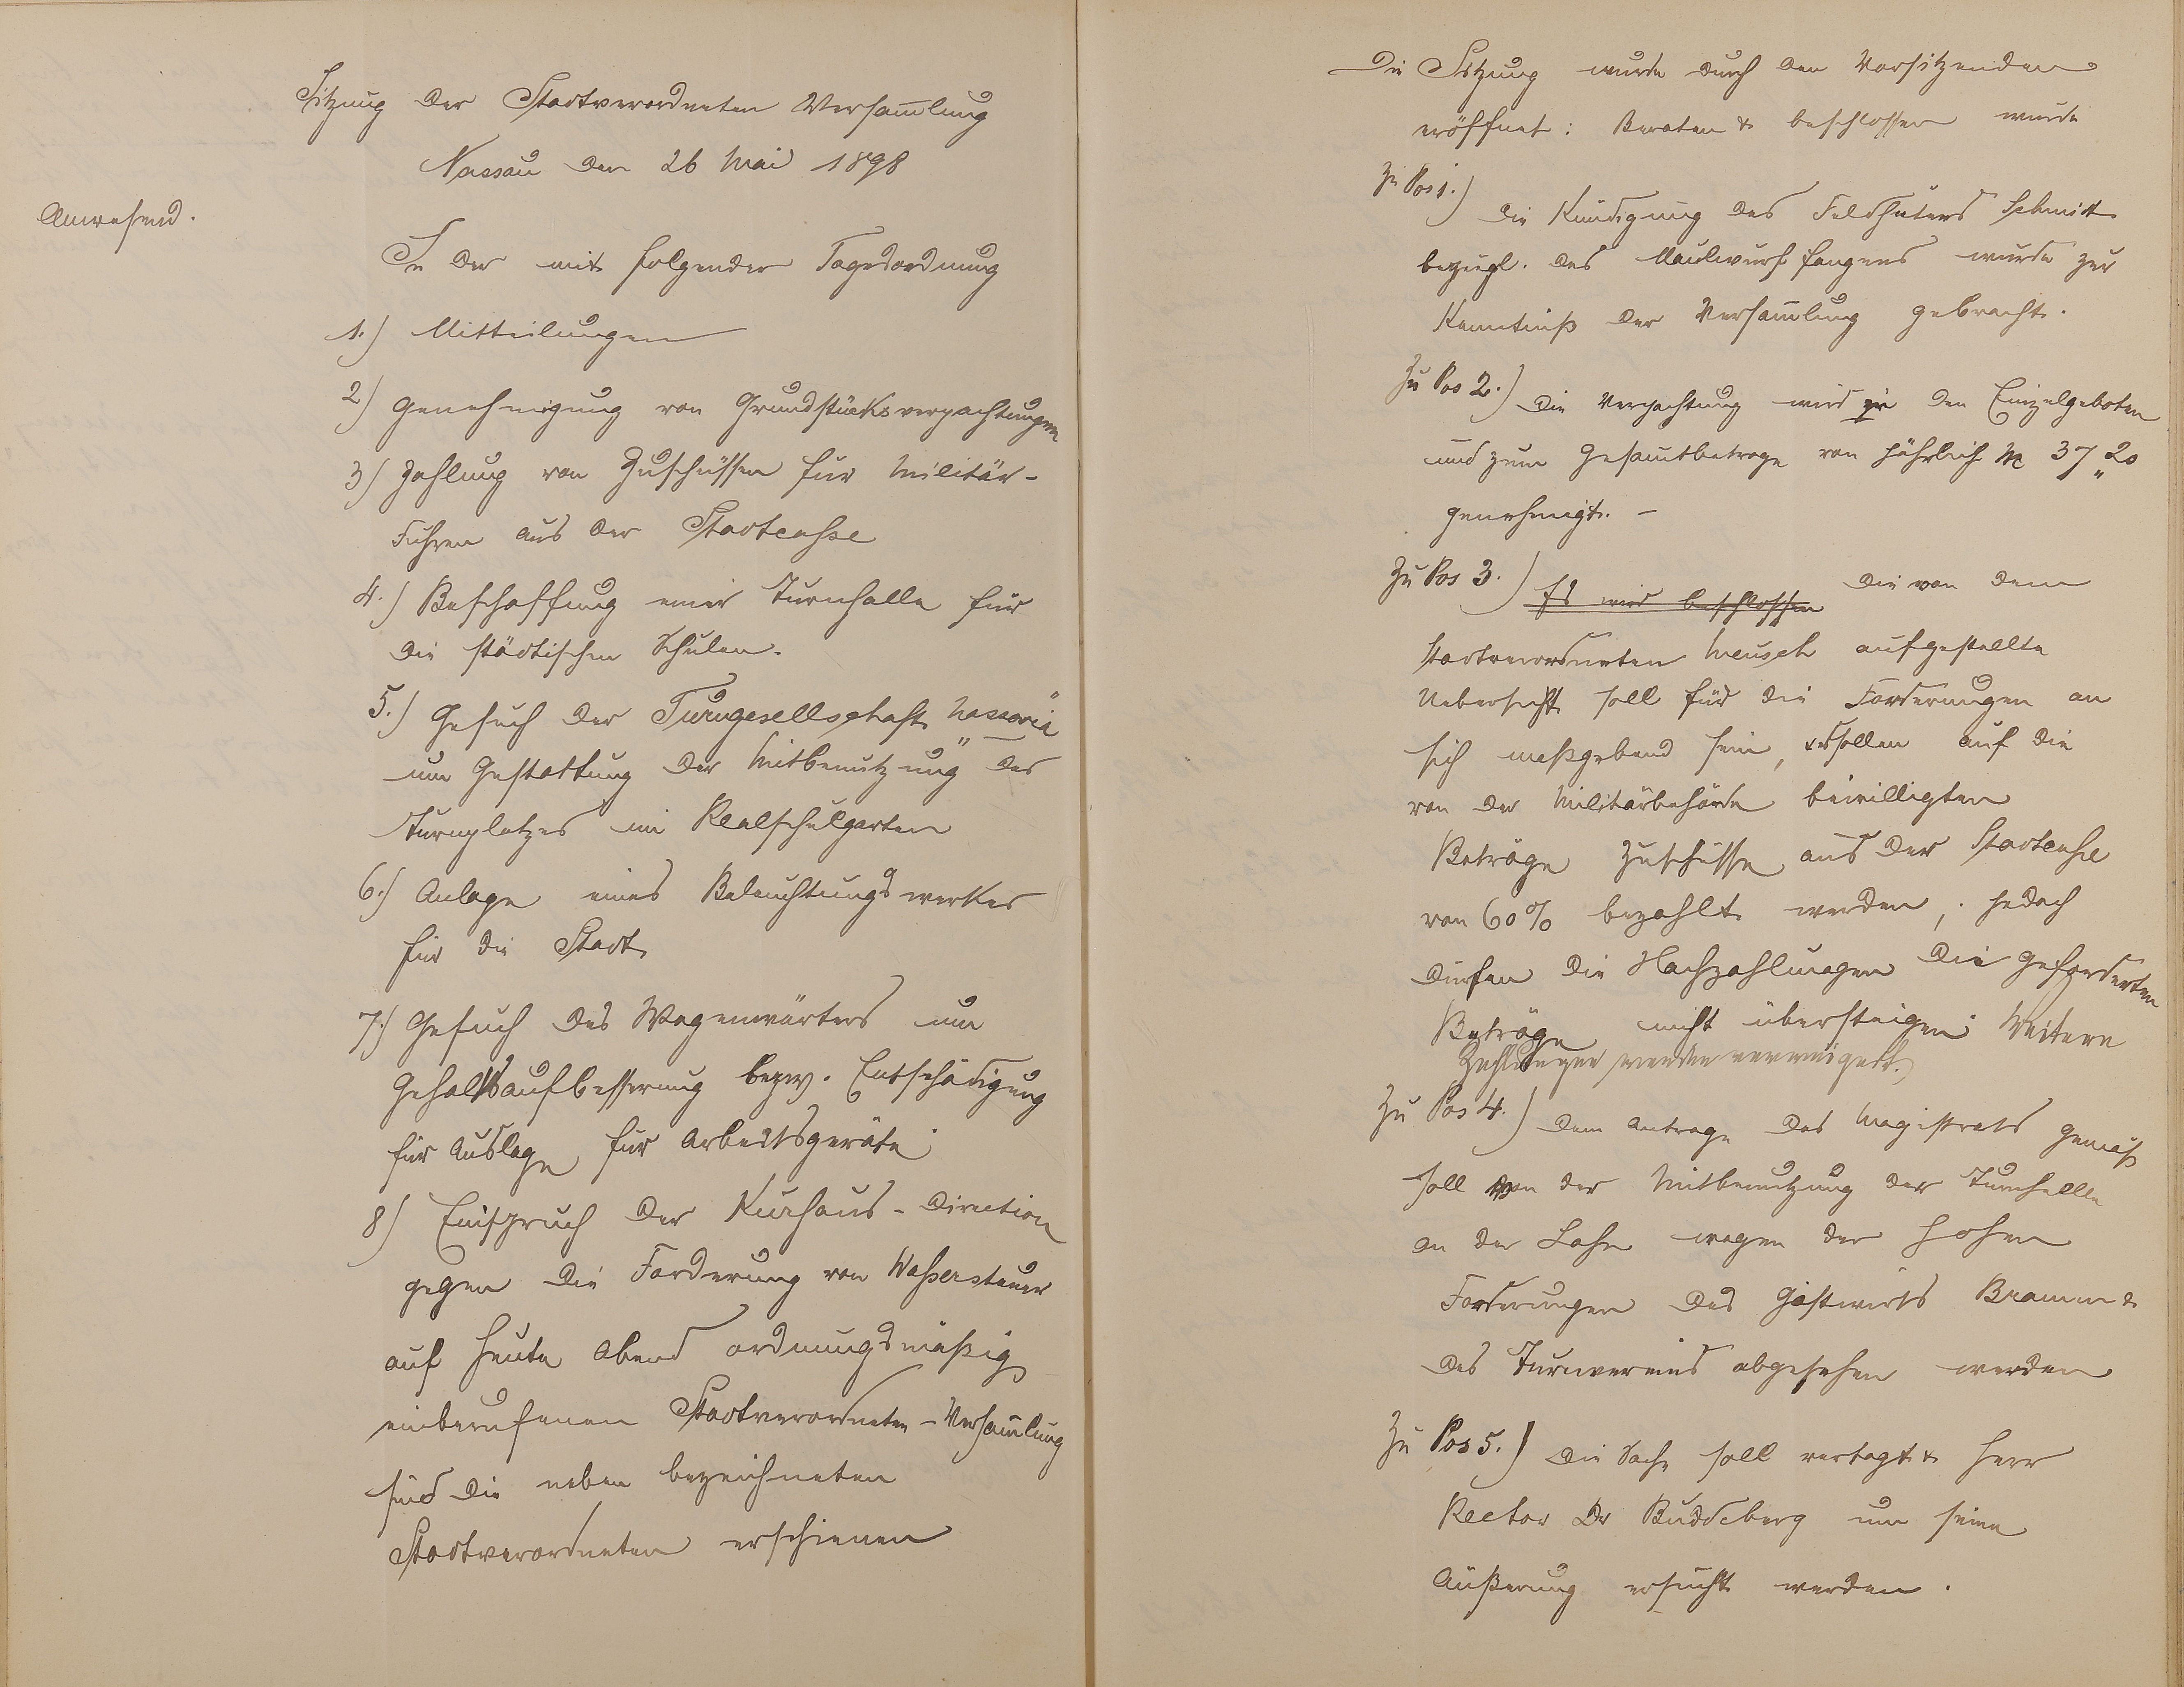 Sitzung der Stadtverordneten Versam̅lung
Nassau den 26 Mai 1898
Anwesend.
In der mit folgender Tagesordnung
1.) Mitteilungen
2) Genehmigung von Grundstücksverpachtungen
3) Zahlung von Zuschüssen für Militär-
Fuhren aus der Stadtcasse
4.) Beschaffung einer Turnhalle für
die städtischen Schulen.
5.) Gesuch der Turngesellschaft „Nassovia"
um Gestattung der Mitbenutzung des
Turnplatzes im Realschulgarten
6.) Anlage eines Beleuchtungswerkes
für die Stadt
7.) Gesuch des Wagenwärters um
Gehaltsaufbesserung bezw. Entschädigung
für Auslage für Arbeitsgeräte
8) Einspruch der Kurhaus-Direction
gegen die Forderung von Wassersteuer
auf heute Abend ordnungsmäßig
einberufenen Stadtverordneten-Versam̅lung
sind die neben bezeichneten
Stadtverordneten erschienen
Die Sitzung wurde durch den Vorsitzenden
eröffnet: Beraten & beschlossen wurde
Zu Pos 1.) Die Kündigung des Feldhüters Schmidt
bezügl. des Maulwurffangens wurde zur
Kenntniß der Versam̅lung gebracht.
Zu Pos 2.) Die Verpachtung wird zu den Einzelgeboten
und zum Gesamtbetrage von jährlich M 37„20
genehmigt. —
Zu Pos 3.) Es wird beschlossen die von dem
Stadtverordneten Meusch aufgestellte
Uebersicht soll für die Forderungen an
sich maßgebend sein, es sollen auf die
von der Militärbehörde bewilligten
Beträge Zuschüsse aus der Stadtcasse
von 60% bezahlt werden, jedoch
dürfen die Nachzahlungen die geforderten
Beträge nicht übersteigen. Weitere
Zahlungen werden verweigert.
Zu Pos 4.) Dem Antrage des Magistrats gemäß
soll von der Mitbenutzung der Turnhalle
an der Lahn wegen der hohen
Forderungen des Gastwirts Bramm &
des Turnvereins abgesehen werden
Zu Pos 5.) Die Sache soll vertagt & Herr
Rector Dr Buddeberg um seine
Äußerung ersucht werden.